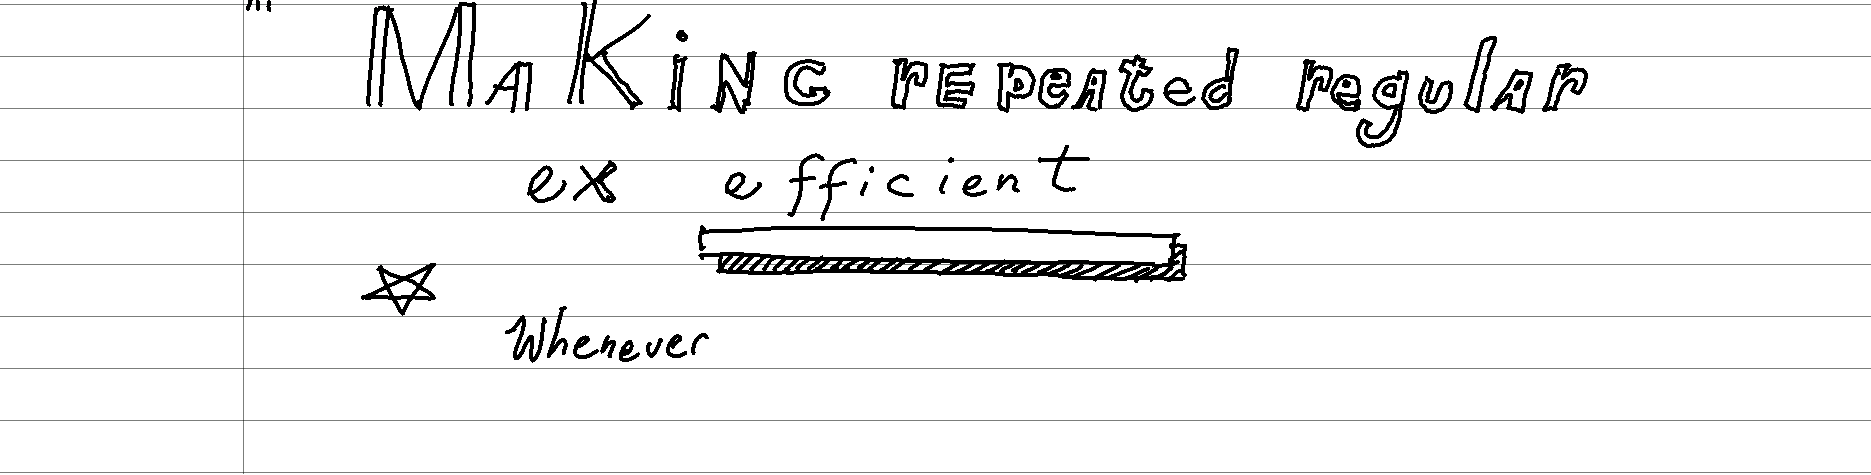 MaKiNG rEpeAted regulAr
ex efficient
Whenever